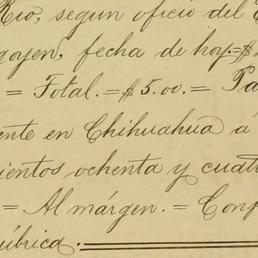 Rio, segun oficio del
goyen, fecha de hoy.=$
= Total.=$5.00.= Pa
ente en Chihuahua á
cientos ochenta y cuat
= Al márgen.= Conf
úbrica.